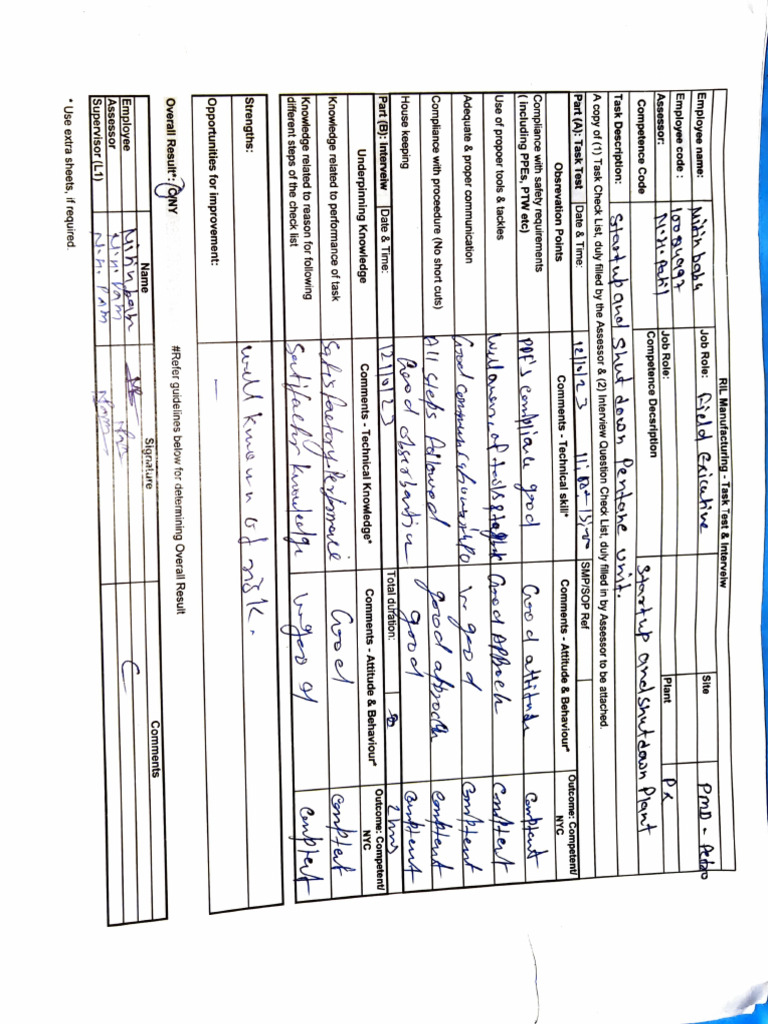 RIL Manufacturing - Task Test & Interveiw
Employee name: Nitin babu Job Role: Field Exicutive Site PMD - Petro
Employee code : 10084997
Assessor: N.N. Patil Job Role: Plant PX
Competence Code Competence Decsription Startup and shutdown Plant
Task Description: Startup and Shut down Pentane unit.
A copy of (1) Task Check List, duly filled by the Assessor & (2) Interview Question Check List, duly filled in by Assessor to be attached.
Part (A): Task Test Date & Time: 12/10/23 SMP/SOP Ref
Obsrevation Points Comments - Technical skill* Comments - Attitude & Behaviour* Outcome: Competent/ NYC
Compliance with safety requirements ( including PPEs, PTW etc) PPE's compliance good Good attitude Comptent
Use of propoer tools & tackles Good APProch Comptent
Adequate & proper communication Good communication V. good Comptent
Compliance with proceedure (No short cuts) All steps followed good approch Comptent
House keeping Good obserbantion good Comptent
Part (B): Interveiw Date & Time: 12/10/23 Total duration: 2 hrs
Underpinning Knowledge Comments - Technical Knowledge* Comments - Attitude & Behaviour* Outcome: Competent/ NYC
Knowledge related to performance of task Satisfactory Performance Good Comptent
Knowledge related to reason for following different steps of the check list Satifactor knowledge V. good Comptent
Strengths: well known of risk.
Opportunities for improvement: —
Overall Result*: C/NY #Refer guidelines below for determining Overall Result
Name Signature Comments
Employee Nitin babu
Assessor C
Supervisor (L1)
* Use extra sheets, if required.